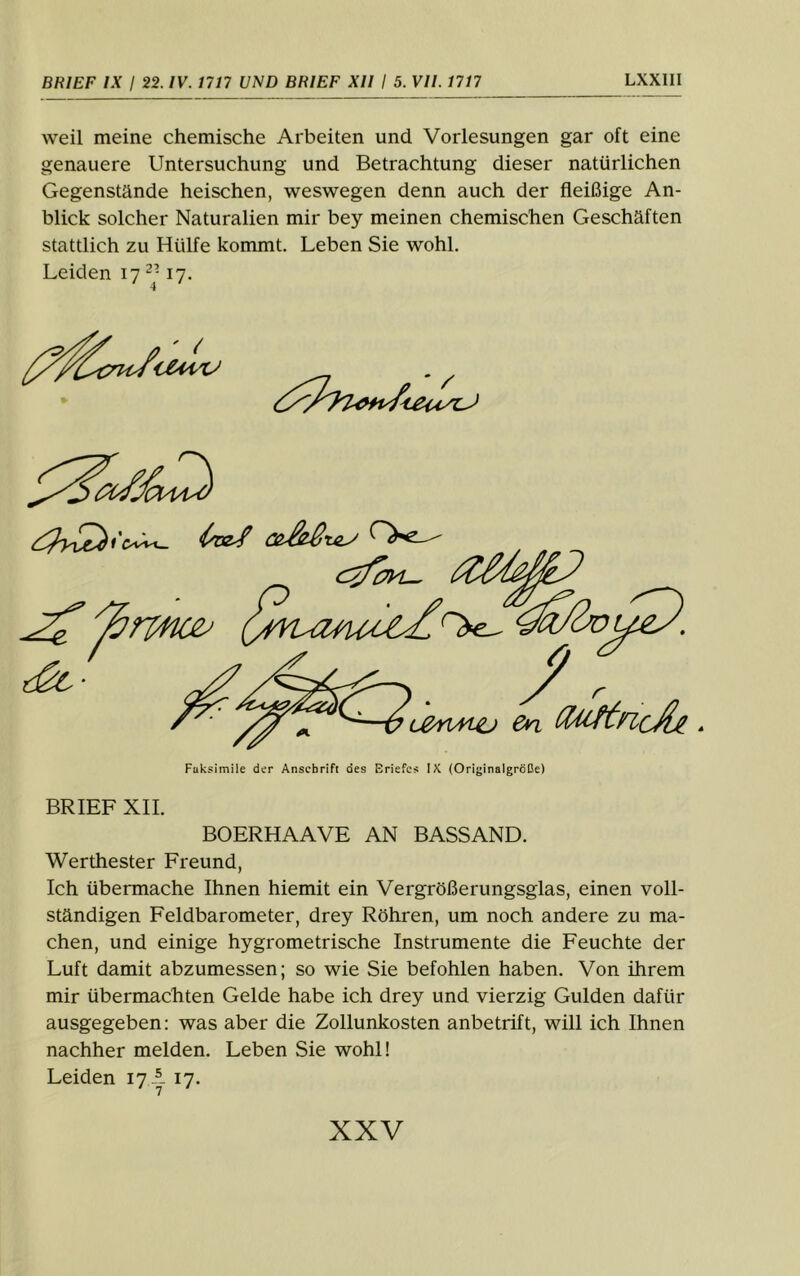 BRIEF IX / 22. IV. 1717 UND BRIEF XII / 5. VII. 1717 LXXIII
weil meine chemische Arbeiten und Vorlesungen gar oft eine
genauere Untersuchung und Betrachtung dieser natürlichen
Gegenstände heischen, weswegen denn auch der fleißige An-
blick solcher Naturalien mir bey meinen chemischen Geschäften
stattlich zu Hülfe kommt. Leben Sie wohl.
Leiden 17 22/4 17.
Monsieur
Monsieur
Bassand
Medicin tres celebre De
son Altesse
Le prince Emanuel De Savoye.
&c.
Vienne en Austriche.
Faksimile der Anschrift des Briefes IX (Originalgröße)
BRIEF XII.
BOERHAAVE AN BASSAND.
Werthester Freund,
Ich übermache Ihnen hiemit ein Vergrößerungsglas, einen voll-
ständigen Feldbarometer, drey Röhren, um noch andere zu ma-
chen, und einige hygrometrische Instrumente die Feuchte der
Luft damit abzumessen; so wie Sie befohlen haben. Von ihrem
mir übermachten Gelde habe ich drey und vierzig Gulden dafür
ausgegeben: was aber die Zollunkosten anbetrift, will ich Ihnen
nachher melden. Leben Sie wohl!
Leiden 17 5/7 17.
XXV